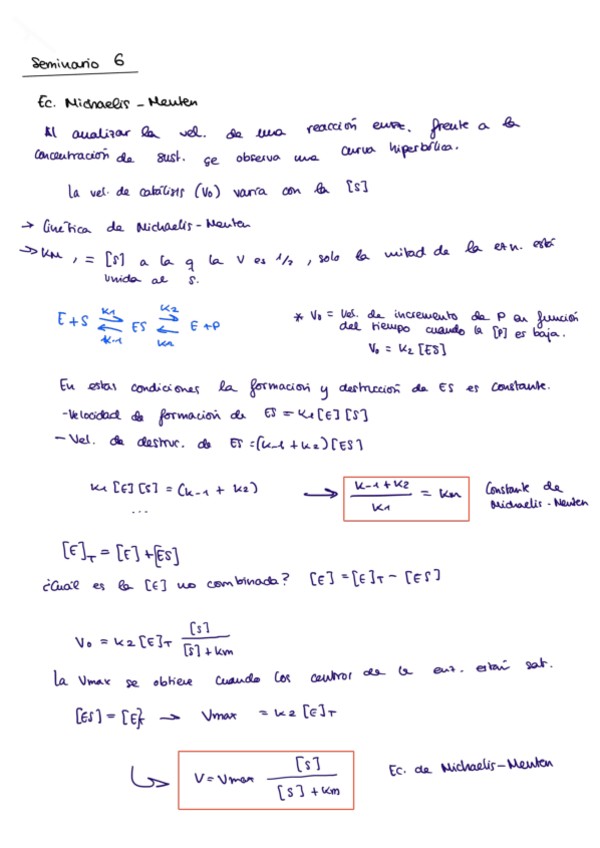 Seminario 6
Ec. Michaelis - Menten
Al analizar la vel. de una reacción enz. frente a la
concentración de sust. se observa una curva hiperbólica.
la vel. de catálisis (V₀) varía con la [S]
→ Cinética de Michaelis - Menten
→ KM, = [S] a la q la V es 1/2, solo la mitad de la ezn. está
unida al S.
E + S ⇌ ES ⇌ E + P
K1 K2
K-1
* V₀ = Vel. de incremento de P en función
del tiempo cuando la [P] es baja.
V₀ = K2 [ES]
En estas condiciones la formación y destrucción de ES es constante.
- Velocidad de formación de ES = K1 [E] [S]
- Vel. de destruc. de ES = (K-1 + K2) [ES]
K1 [E] [S] = (K-1 + K2) → (K-1 + K2) / K1 = Km Constante de
Michaelis - Menten
...
[E]T = [E] + [ES]
¿Cuál es la [E] no combinada? [E] = [E]T - [ES]
V₀ = K2 [E]T [S] / ([S] + Km)
La Vmax se obtiene cuando los centros de la enz. están sat.
[ES] = [E]T → Vmax = K2 [E]T
↳ V = Vmax [S] / ([S] + Km) Ec. de Michaelis - Menten